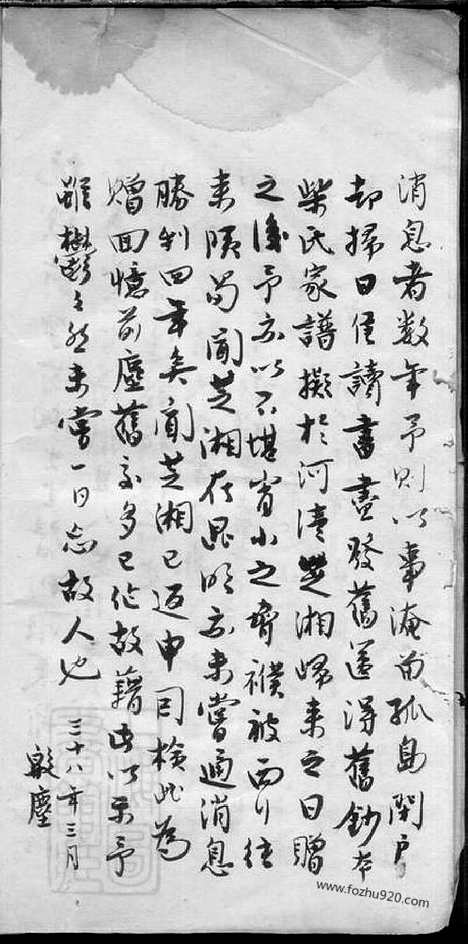 消息者數年予則以事淹留孤島閉戶
却掃日惟讀書盡發舊篋得舊鈔本
柴氏家譜擬於河清芝湘歸來之日贈
之後予亦以不堪宵小之脅襆被西行往
來陝蜀聞芝湘在昆明亦未嘗通消息
勝利四年矣聞芝湘已返申司檢此為
贈回憶前塵舊交多已作故藉此以示予
雖鬱鬱然未嘗一日忘故人也
三十八年三月
殷塵
www.fozhu920.com